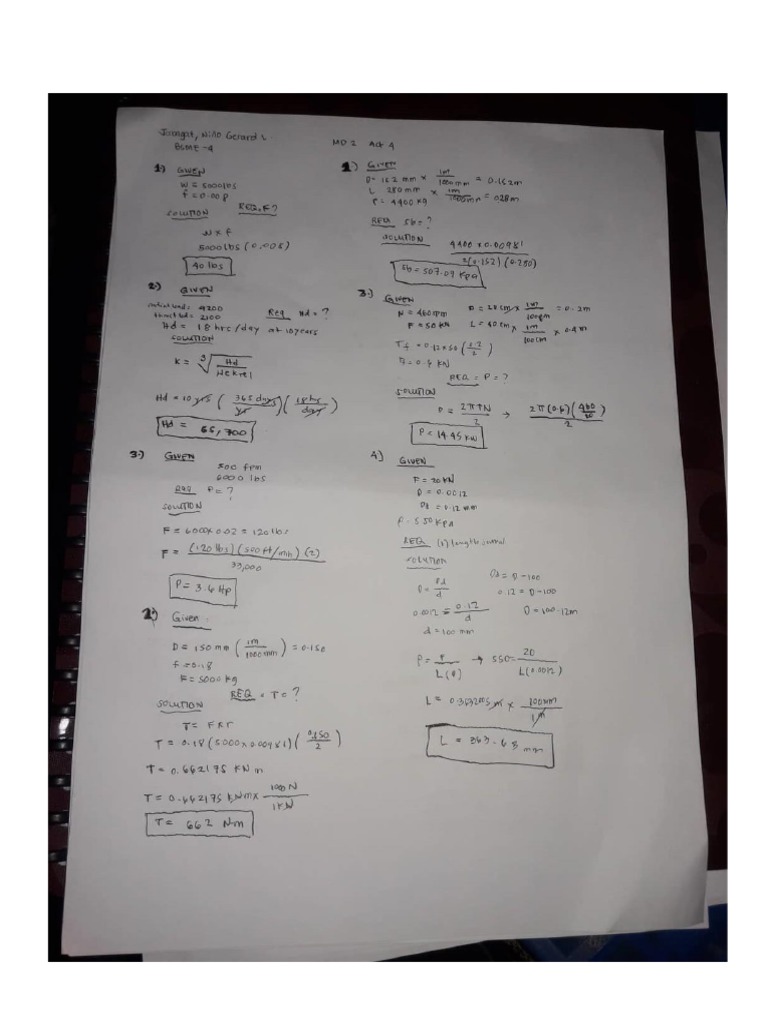 Nino Gerard L
BSME-4
MD 2 Act 4
1) GIVEN
W = 5000 lbs
SOLUTION REQ. F ?
W x f
5000 lbs (0.008)
40 lbs
2) GIVEN
4200
2100
Req Hd = ?
Hd = 18 hrs/day at 10 years
SOLUTION
K = ∛ Hd
Hd = 10 yrs ( 365 days / yr ) ( 18 hrs / day )
Hd = 65,700
3.) GIVEN
500 fpm
6000 lbs
REQ P = ?
SOLUTION
F = 6000 x 0.02 = 120 lbs
F = (120 lbs) (500 ft/min) (2)
33,000
P = 3.6 Hp
2) Given
D = 150 mm ( 1m / 1000 mm ) = 0.150
f = 0.18
F = 5000 kg
REQ = T = ?
SOLUTION
T = F x r
T = 0.18 (5000 x 0.00981) ( 0.150 / 2 )
T = 0.662175 KN m
T = 0.662175 KNm x 1000 N
1 KN
T = 662 Nm
1) GIVEN
D = 152 mm x 1m / 1000 mm = 0.152 m
L 280 mm x 1m / 1000 mm = 028m
P = 4400 Kg
REQ Sb = ?
SOLUTION
4400 x 0.00981
2(0.152) (0.280)
Sb = 507.09 Kpa
3.) GIVEN
N = 460 rpm D = 20 cm x 1m / 100 cm = 0.2m
F = 50 KN L = 40 cm x 1m / 100 cm x 0.4m
Tf = 0.12 x 50 ( 0.2 / 2 )
REQ = P = ?
SOLUTION
P = 2πTN / 2 → 2π (0.6) ( 460 / 60 ) / 2
P = 14.45 KW
4) GIVEN
F = 20 KN
D = 0.0012
Pd = 0.12 mm
P = 550 Kpa
REQ (L) length journal
SOLUTION
D = Pd / d Pd = D - 100
0.12 = D - 100
0.0012 = 0.12 / d D = 100.12m
d = 100 mm
P = F / L(D) → 550 = 20 / L(0.0012)
1m
L = 363.63 mm